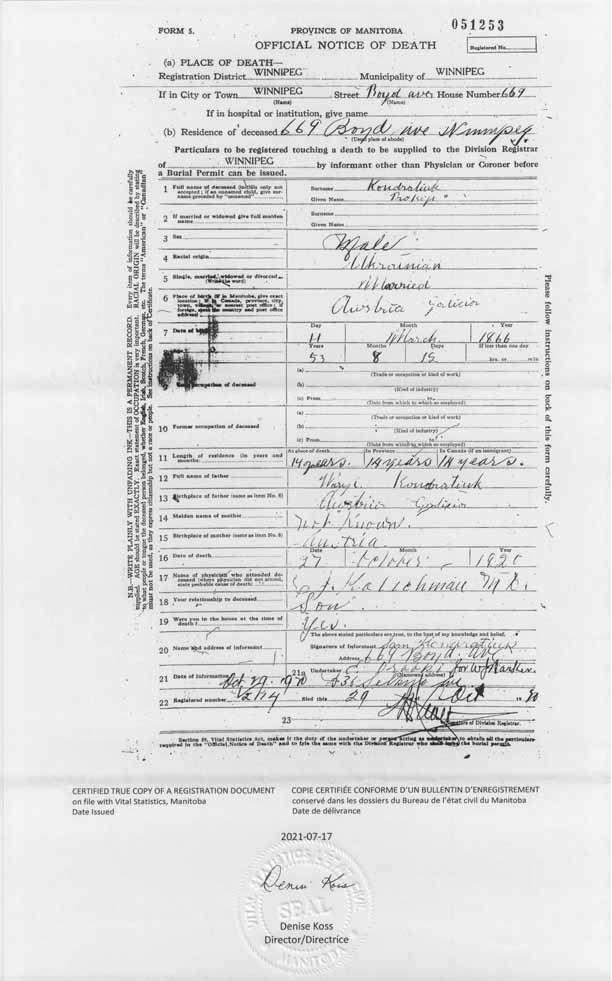 051253
FORM 5. PROVINCE OF MANITOBA
OFFICIAL NOTICE OF DEATH
Registered No.
(a) PLACE OF DEATH—
Registration District WINNIPEG Municipality of WINNIPEG
If in City or Town WINNIPEG Street Boyd ave House Number 669
(Name) (Name)
If in hospital or institution, give name
(b) Residence of deceased 669 Boyd ave Winnipeg
(Usual place of abode)
Particulars to be registered touching a death to be supplied to the Division Registrar
of WINNIPEG by informant other than Physician or Coroner before
a Burial Permit can be issued.
1 Full name of deceased (initials only not accepted; if an unnamed child, give surname preceded by "unnamed") Surname Kondratiuk
Given Name Prokip
2 If married or widowed give full maiden name Surname
Given Name
3 Sex Male
4 Racial origin Ukrainian
5 Single, married, widowed or divorced (Write the word) Married
6 Place of birth (if in Manitoba, give exact location; if in Canada, province, city, town, village, or nearest post office; if foreign, state the country and post office address) Austria Galicia
7 Date of birth Day Month Year
11 March 1866
Years Months Days If less than one day
53 8 15 hrs. or min
occupation of deceased (a)
(Trade or occupation or kind of work)
(b)
(Kind of industry)
(c) From
(Date from which to which so employed)
10 Former occupation of deceased (a)
(Trade or occupation or kind of work)
(b)
(Kind of industry)
(c) From
(Date from which to which so employed)
11 Length of residence (in years and months) At place of death In Province In Canada (if an immigrant)
14 years. 14 years 14 years.
12 Full name of father Kondratiuk
13 Birthplace of father (same as item No. 6) Austria Galicia
14 Maiden name of mother not Known.
15 Birthplace of mother (same as item No. 6) Austria
16 Date of death Date Month Year
27 October 1920
17 Name of physician who attended deceased (where physician did not attend, state probable cause of death) M D.
18 Your relationship to deceased Son
19 Were you in the house at the time of death? Yes.
The above stated particulars are true, to the best of my knowledge and belief,
20 Name and address of informant Signature of Informant Sam Kondratiuk
Address 669 Boyd. Ave
21 Date of information Oct 29. 1920 21a Undertaker for
(Name and address)
22 Registered number Filed this 29 Oct 19 20
23 Signature of Division Registrar.
Section 29, Vital Statistics Act, makes it the duty of the undertaker or person acting as undertaker to obtain all the particulars
required in the "Official Notice of Death" and to file the same with the Division Registrar who shall issue the burial permit.
N.B.—WRITE PLAINLY WITH UNFADING INK—THIS IS A PERMANENT RECORD. Every item of information should be carefully
supplied. AGE should be stated EXACTLY. Exact statement of OCCUPATION is very important. RACIAL ORIGIN will be described by stating
to what people or tongue the deceased person belonged, whether English, Irish, Scotch, French, German, etc. The terms "American" or "Canadian"
must not be used, as they express citizenship but not a race or people. See instructions on back of Certificate.
Please follow instructions on back of this form carefully.
CERTIFIED TRUE COPY OF A REGISTRATION DOCUMENT
on file with Vital Statistics, Manitoba
Date Issued
COPIE CERTIFIÉE CONFORME D'UN BULLENTIN D'ENREGISTREMENT
conservé dans les dossiers du Bureau de l'état civil du Manitoba
Date de délivrance
2021-07-17
Denise Koss
SEAL
Denise Koss
Director/Directrice
MANITOBA